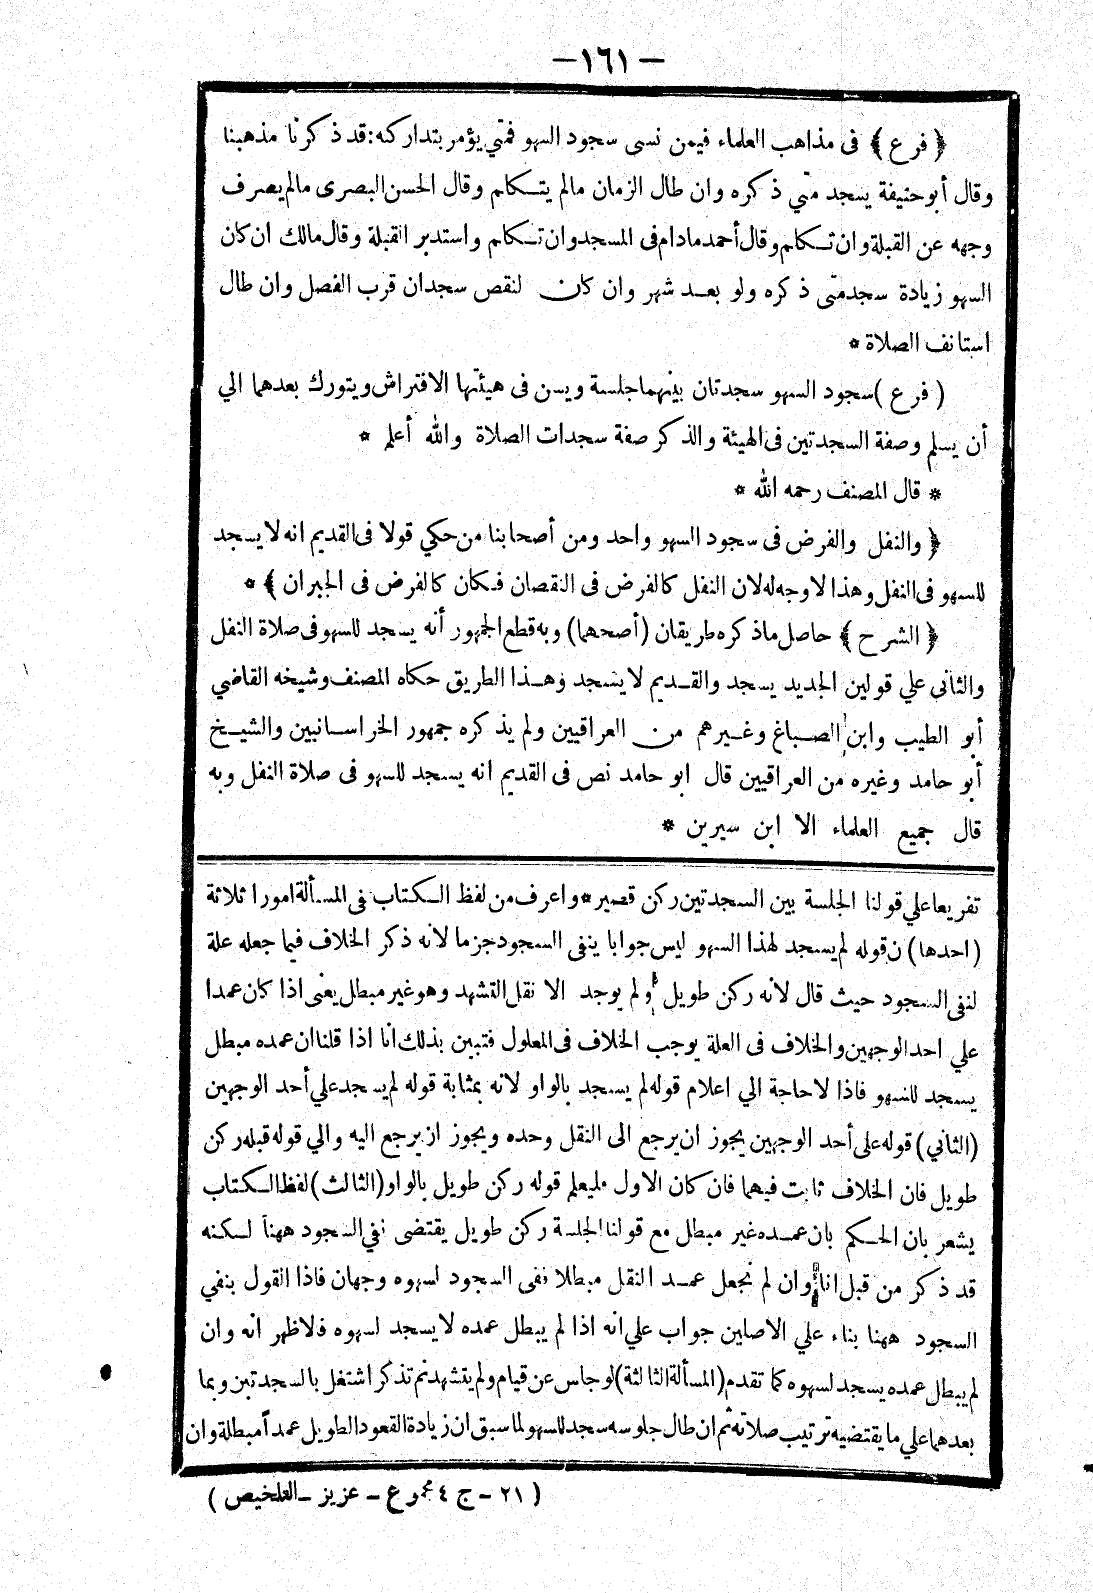 — ١٦١ —
﴿ فرع ﴾ فى مذاهب العلماء فيمن نسى سجود السهو فمتي يؤمر بتداركه: قد ذكرنا مذهبنا
وقال أبو حنيفة يسجد متي ذكره وان طال الزمان مالم يتكلم وقال الحسن البصرى مالم يصرف
وجهه عن القبلة وان تكلم وقال أحمد مادام فى المسجد وان تكلم واستدبر القبلة وقال مالك ان كان
السهو زيادة سجد متى ذكره ولو بعد شهر وان كان لنقص سجد ان قرب الفصل وان طال
استانف الصلاة *
( فرع ) سجود السهو سجدتان بينهما جلسة ويسن فى هيئتها الافتراش ويتورك بعدهما الي
أن يسلم وصفة السجدتين فى الهيئة والذكر صفة سجدات الصلاة والله أعلم *
* قال المصنف رحمه الله *
﴿ والنفل والفرض فى سجود السهو واحد ومن أصحابنا من حكي قولا فى القديم انه لا يسجد
للسهو فى النفل وهذا لا وجه له لان النفل كالفرض فى النقصان فكان كالفرض فى الجبران ﴾ *
﴿ الشرح ﴾ حاصل ماذكره طريقان (أصحهما) وبه قطع الجمهور أنه يسجد للسهو فى صلاة النفل
والثانى علي قولين الجديد يسجد والقديم لا يسجد وهذا الطريق حكاه المصنف وشيخه القاضي
أبو الطيب وابن الصباغ وغيرهم من العراقيين ولم يذكره جمهور الخراسانيين والشيخ
أبو حامد وغيره من العراقيين قال ابو حامد نص فى القديم انه يسجد للسهو فى صلاة النفل وبه
قال جميع العلماء الا ابن سيرين *
تفريعا علي قولنا الجلسة بين السجدتين ركن قصير * واعرف من لفظ الكتاب فى المسألة امورا ثلاثة
(احدها) ن قوله لم يسجد لهذا السهو ليس جوابا ينفى السجود جزما لانه ذكر الخلاف فيما جعله علة
لنفى السجود حيث قال لانه ركن طويل ولم يوجد الا نقل التشهد وهو غير مبطل يعنى اذا كان عمدا
علي احد الوجهين والخلاف فى العلة يوجب الخلاف فى المعلول فتبين بذلك انا اذا قلنا ان عمده مبطل
يسجد للسهو فاذا لا حاجة الي اعلام قوله لم يسجد بالواو لانه بمثابة قوله لم يسجد علي أحد الوجهين
(الثاني) قوله على أحد الوجهين يجوز ان يرجع الى النقل وحده ويجوز ان يرجع اليه والي قوله قبله ركن
طويل فان الخلاف ثابت فيهما فان كان الاول فليعلم قوله ركن طويل بالواو (الثالث) لفظ الكتاب
يشعر بان الحكم بان عمده غير مبطل مع قولنا الجلسة ركن طويل يقتضى نفي السجود ههنا لكنه
قد ذكر من قبل انا وان لم نجعل عمد النقل مبطلا نفى السجود لسهوه وجهان فاذا القول بنفي
السجود ههنا بناء علي الاصلين جواب علي انه اذا لم يبطل عمده لا يسجد لسهوه فلاظهر انه وان
لم يبطل عمده يسجد لسهوه كما تقدم (المسألة الثالثة) لو جلس عن قيام ولم يتشهد ثم تذكر اشتغل بالسجدتين وبما
بعدهما علي ما يقتضيه ترتيب صلاته ثم ان طال جلوسه سجد للسهو لما سبق ان زيادة القعود الطويل عمداً مبطلة وان
( ٢١ – ج ٤ مجموع – عزيز – التلخيص )